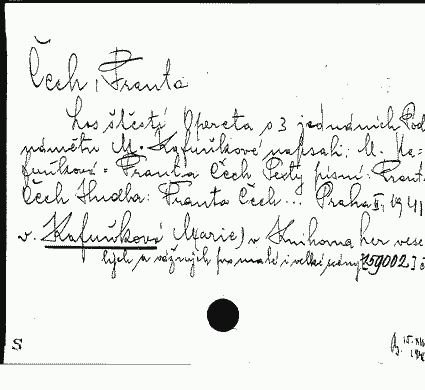 Čech, Franta
Los štěstí Opereta o 3 jednáních Pod
námětu M. Kafuňkové napsali: M. Ka=
fuňková - Franta Čech Texty písní: Frant
Čech Hudba: Franta Čech... Praha II, 1941
v. Kafuňková (Marie) v Knihovna her vese
lých a vážných pro malé i velké scény 159002
S